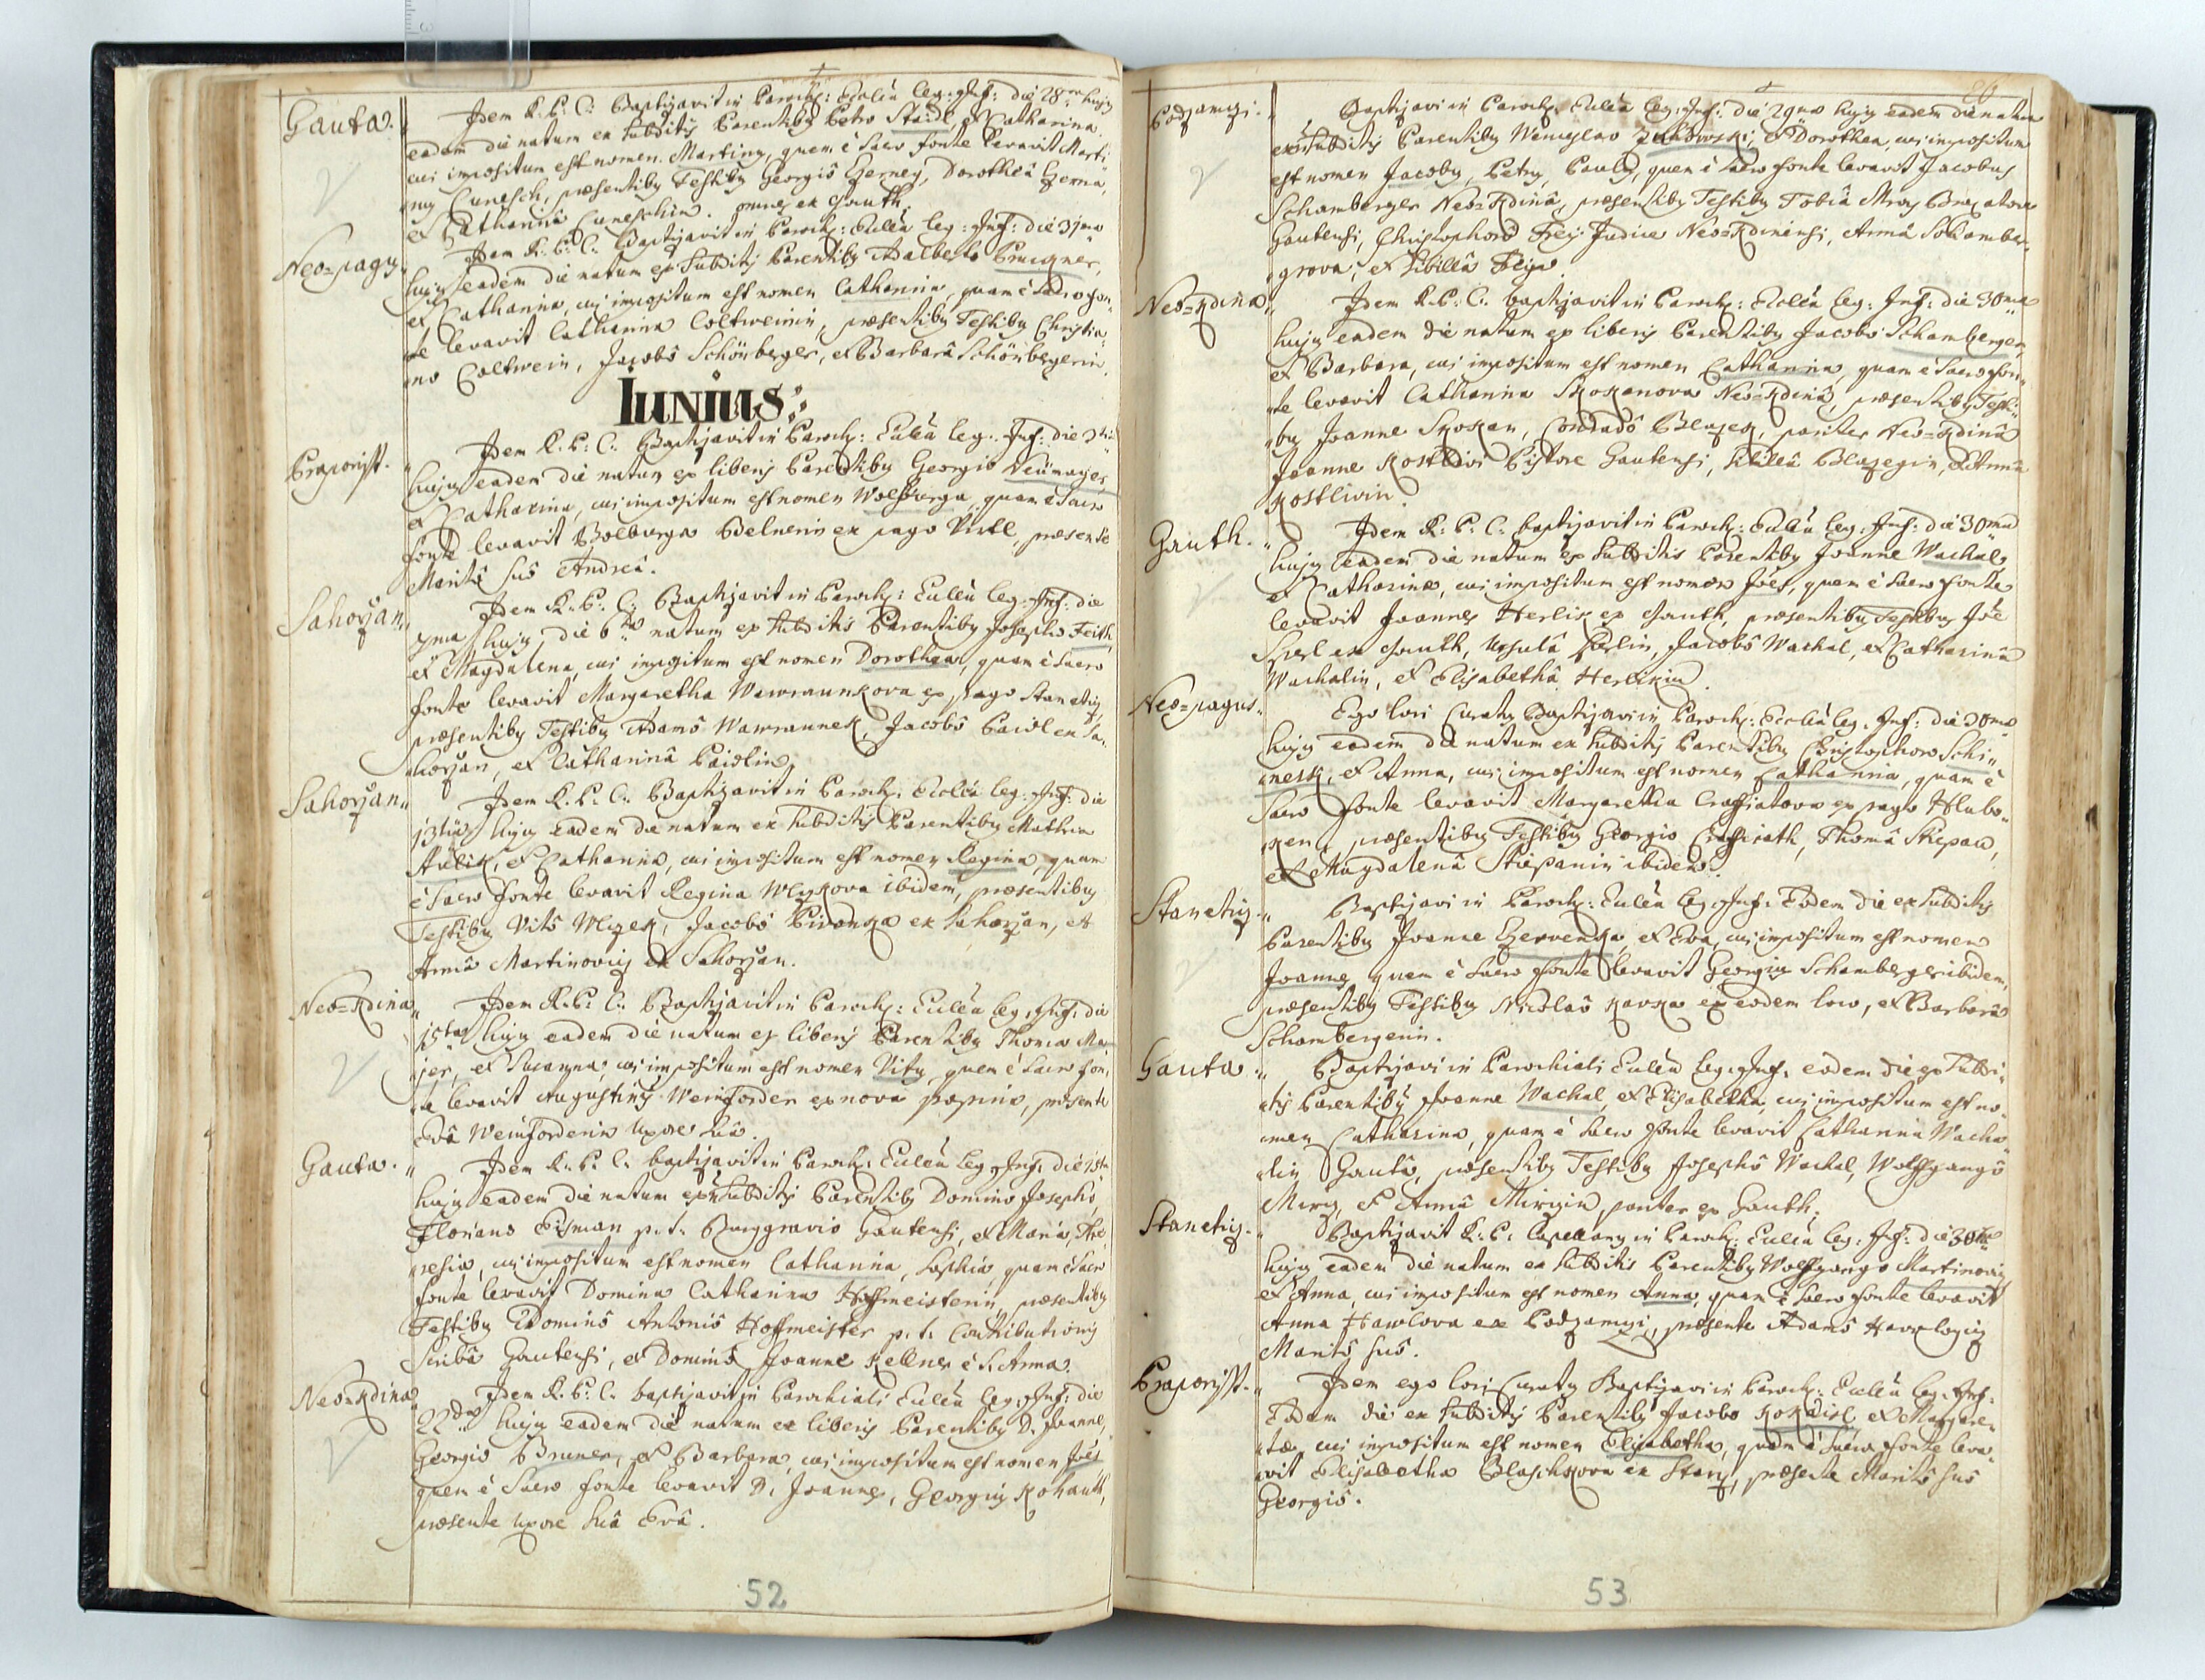 Gauta.
Idem R: P: C: Baptizavit in Paroch: Ecclia leg: Inf: die 28 hujus
eadem die natum ex subditis Parentibus Petro Staidl et Catharina
cui impositum est nomen Martinus, quem è sacro fonte levavit Marti-
nus Cunesch, præsentibus Testibus Georgio Czerney, Dorothea Czerna,
et Catharinâ Cuneschin. omnes ex Gauth.
Neo=pagus
Idem R: P: C: Baptizavit in Paroch: Ecclia leg: Inf: die 31ma
hujus eadem die natum ex subditis Parentibus Adalberto Pruigner,
et Catharina, cui impositum est nomen Catharina, quam è sacro fon-
te levavit Catharina Coltweinin, præsentibus Testibus Christia-
no Coltwein, Jacobô Schönberger, et Barbarâ Schönbergerin.
IUNIUS:
Praporist.
Idem R: P: C: Baptizavit in Paroch: Ecclia leg: Inf: die 3tia
hujus eadem die natum ex liberis Parentibus Georgio Neümayer
et Catharina, cui impositum est nomen Wolburga, quam è sacro
fonte levavit Wolburga Belnerin ex pago Virtl, præsente
Maritô suô Andreâ.
Sahorzan
Idem R: P: C: Baptizavit in Paroch: Ecclia leg: Inf: die
7ma hujus, die 6ta natum ex subditis Parentibus Josepho Feith,
et Magdalena, cui impositum est nomen Dorothea, quam è sacro
fonte levavit Margaretha Wawraunkova ex pago Stanetiz
præsentibus Testibus Adamô Wawraunek, Jacobô Paidl ex Sa-
horzan, et Catharinâ Paidlin.
Sahorzan
Idem R: P: C: Baptizavit in Paroch: Ecclia leg: Inf: die
13tia hujus eadem die natum ex subditis Parentibus Mathia
Aulik, et Catharina, cui impositum est nomen Regina, quam
è sacro fonte levavit Regina Wlzkova ibidem, præsentibus
Testibus Vitô Wlzek, Jacobô Pivonka ex Sahorzan, et
Annâ Martinoviz ex Sahorzan.
Neo=Kdina
Idem R: P: C: Baptizavit in Paroch: Ecclia leg: Inf: die
15ta hujus eadem die natum ex liberis Parentibus Thoma Ma-
jer, et Susanna, cui impositum est nomen Vitus, quem è sacro fon-
te levavit Augustinus Weinforder ex nova papinia, præsente
Evâ Weinforderin Uxore suâ.
Gauta.
Idem R: P: C: baptizavit in Paroch: Ecclia leg: Inf: die 15ta
hujus eadem die natum ex subditis Parentibus Domino Josepho
Floriano Eisman p: t: Burggravio Gautensi, et Maria The-
resia, cui impositum est nomen Catharina, Sophia, quam è sacro
fonte levavit Domina Catharina Hoffmeisterin, præsentibus
Testibus Dominô Antoniô Hoffmeister p: t: Contributionis
Scribâ Gautensi, et Dominô Joanne Kellner è S: Anna.
Neo=Kdina
Idem R: P: C: baptizavit in Parochiali Ecclia leg: Inf: die
22da hujus eadem die natum ex liberis Parentibus D: Joanne,
Georgio Bruner, et Barbara, cui impositum est nomen Joes
quem è sacro fonte levavit D: Joannes, Georgius Kohaut,
præsente Uxore suâ Evâ.
52
Podzamczi.
Baptizavi in Paroch: Ecclia leg: Inf: die 29na hujus eadem die natum
ex subditis Parentibus Wenceslao Zukowski, et Dorothea, cui impositum
est nomen Jacobus, Petrus, Paulus, quem è sacro fonte levavit Jacobus
Schamberger Neo=Kdinâ, præsentibus Testibus Tobiâ Mraz Braxatore
Gautensi, Christophorô Freÿ Judice Neo=Kdinensi, Annâ Schamber-
grova, et Sibillâ
Neo=Kdina
Idem R: P: C: baptizavit in Paroch: Ecclia leg: Inf: die 30ma
hujus eadem die natum ex liberis Parentibus Jacobo Schamberger,
et Barbara, cui impositum est nomen Catharina, quam è sacro fon-
te levavit Catharina Skokanova Neo=Kdinâ, præsentibus Testi-
bus Joanne Skokan, Conradô Blazek, pariter Neo=Kdinâ
Joanne Kostliv Pistore Gautensi, Sibillâ Blazegin, et Annâ
Kostlivin.
Gauth.
Idem R: P: C: baptizavit in Paroch: Ecclia leg: Inf: die 30ma
hujus eadem die natum ex subditis Parentibus Joanne Wachal,
et Catharina, cui impositum est nomen Joes, quem è sacro fonte
levavit Joannes Herlik ex Gauth, præsentibus Testibus Joe
Sperl ex Gauth, Ursulâ Perlin, Jacobô Wachal, et Catharinâ
Wachalin, et Elisabethâ Herlikin.
Neo=pagus
Ego loci Curatus Baptizavi in Paroch: Ecclia leg: Inf: die 30ma
hujus eadem die natum ex subditis Parentibus Christophoro Schi-
nesk, et Anna, cui impositum est nomen Catharina, quam è
sacro fonte levavit Margaretha ex pago Hlubo-
ken, præsentibus Testibus Georgio Thomâ Stiepan,
et Magdalenâ Stiepanin ibidem.
Stanetiz.
Baptizavi in Paroch: Ecclia leg: Inf: Eodem die ex subditis
Parentibus Joanne Czervenka, et Eva, cui impositum est nomen
Joannes, quem è sacro fonte levavit Georgius Schamberger ibidem,
præsentibus Testibus Nicolaô Kavka ex eodem loco, et Barbarâ
Schambergerin.
Gauta.
Baptizavi in Parochiali Ecclia leg: Inf: eodem die ex subdi-
tis Parentibus Joanne Wachal, et Elisabetha, cui impositum est no-
men Catharina, quam è sacro fonte levavit Catharina Wacha-
lin Gautâ, præsentibus Testibus Josephô Wachal, Wolffgangô
Mirz, et Annâ Mirzin, pariter ex Gauth.
Stanetiz.
Baptizavit R: P: Capellanus in Paroch: Ecclia leg: Inf: die 30ma
hujus eadem die natum ex subditis Parentibus Wolffgango Martinoviz
et Anna, cui impositum est nomen Anna, quam è sacro fonte levavit
Anna Hawlova ex Podzamczi, præsente Adamô
Maritô suô.
Praporist.
Idem ego loci Curatus Baptizavi in Paroch: Ecclia leg: Inf:
Eodem die ex subditis Parentibus Jacobo Kokaisl et Margare-
ta, cui impositum est nomen Elisabetha, quam è sacro fonte leva-
vit Elisabetha Blaschkova ex Starz, præsente Maritô suô
Georgiô.
53